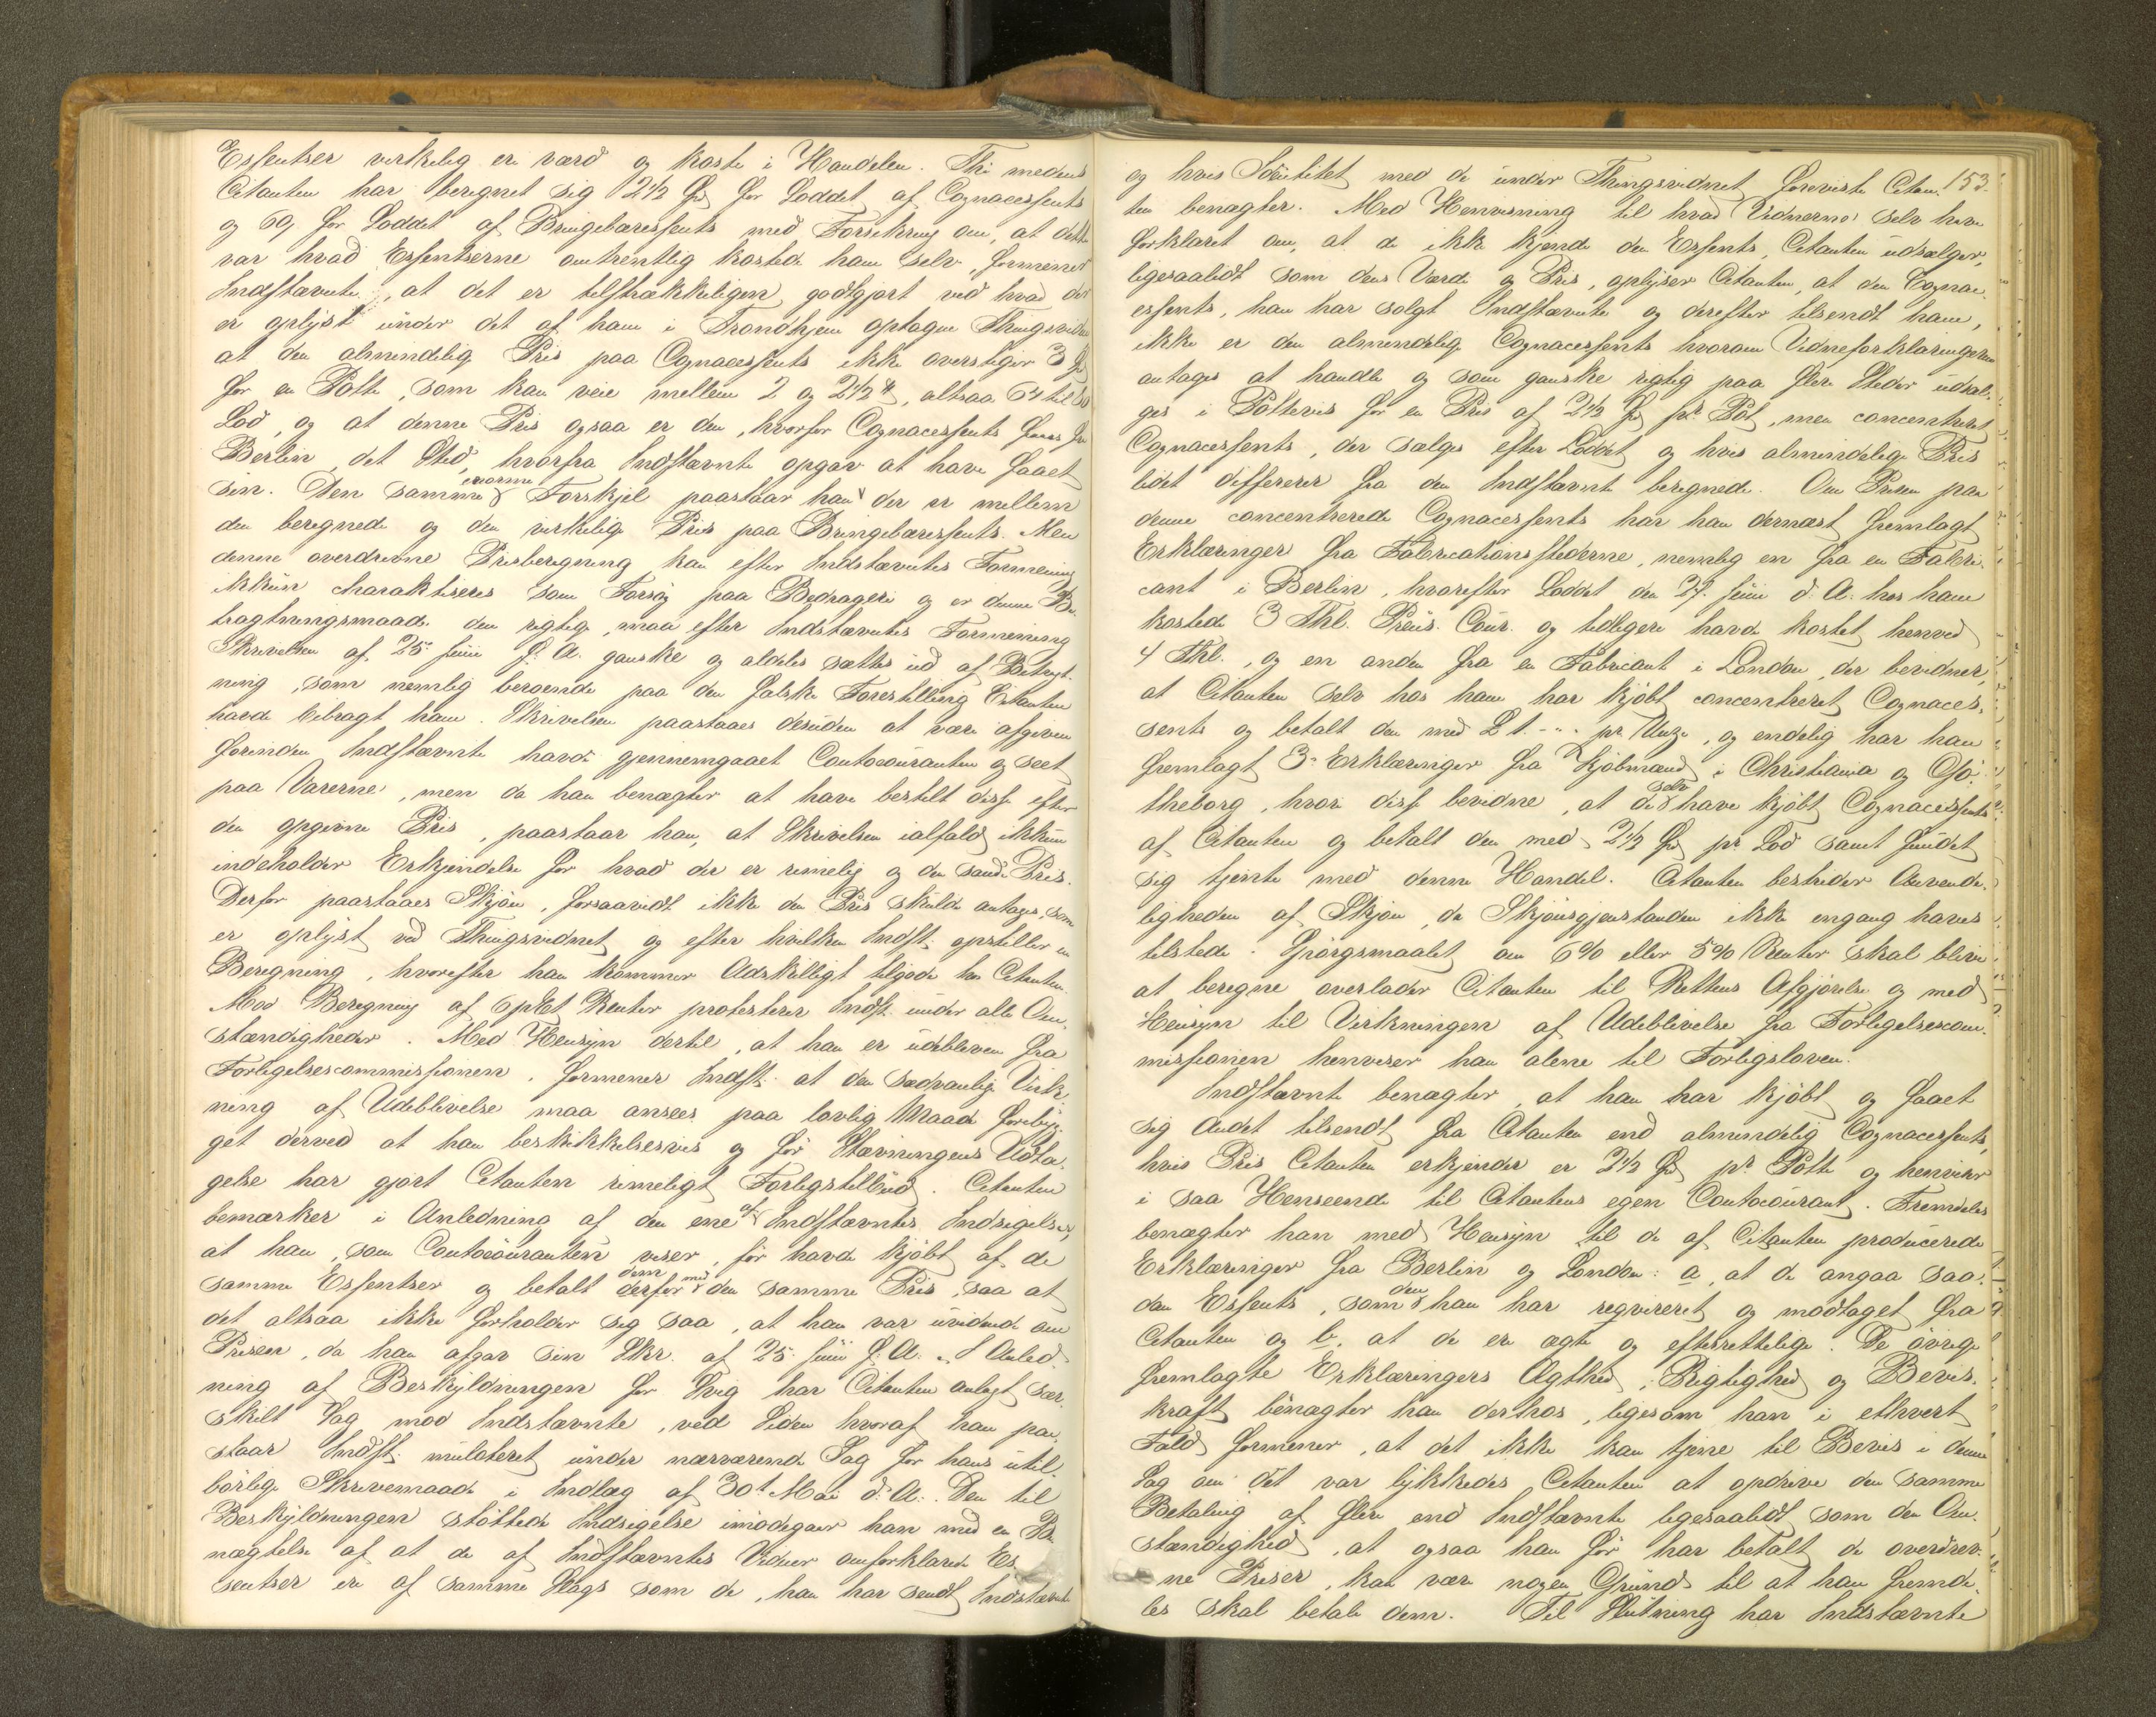 Essentser virkelig er værd og koste i Handelen. Thi medens
Citanten har beregnet sig 2 1/2 Spd for Loddet af Cognacessents
og 60 for Loddet af Bringebæressents med Forsikring om, at dette
var hvad Essentserne omtrentlig kostede ham selv, formener
Indstævnte, at det er tilstrækkeligen godtgjort ved hvad der
er oplyst under det af ham i Trondhjem optagne Thingsvidne
at den almindelig Pris paa Cognacessents ikke overstiger 3 Spd
for en Potte, som kan veie mellem 2 og 2 1/2 ℔, altsaa 64 til 80
Lod, og at denne Pris ogsaa er den, hvorfor Cognacessents faaes fra
Berlin, det Sted, hvorfra Indstævnte opgav at have faaet
sin. Den samme enorme Forskjel paastaar han der er mellem
den beregnede og den virkelige Pris paa Bringebæressents. Men
denne overdrevne Prisberegning kan efter Indstævntes Formening
ikkun charaktiseres som Forsøg paa Bedrageri og er denne Be-
tragtningsmaade den rigtige, maa efter Indstævntes Formening
Skrivelsen af 25 Juni f. A. ganske og aldeles sættes ud af Betragt-
ning, som nemlig beroende paa den falske Forestilling Citanten
havde bibragt ham. Skrivelsen paastaaes desuden at være afgiven
forinden Indstævnte havde gjennemgaaet Contocouranten og seet
paa Varerne, men da han benægter at have bestilt disse efter
den opgivne Pris, paastaar han, at Skrivelsen ialfald ikkun
indeholder Erkjendelse for hvad der er rimelig og den sande Pris.
Derfor paastaaes Skjøn, forsaavidt ikke den Pris skulde antages, som
er oplyst ved Thingsvidnet og efter hvilken Indst. opstiller en
Beregning, hvorefter han kommer Adskilligt tilgode hos Citanten.
Mod Beregning af 6 pCt Renter protesterer Indst. under alle Om-
stændigheder. Med Hensyn dertil, at han er udebleven fra
Forligelsescommissionen, formener Indst. at den sædvanlige Virk-
ning af Udeblivelse maa ansees paa lovlig Maade forebyg-
get derved at han beskikkelsesvis og før Stævningens Udta-
gelse har gjort Citanten rimeligt Forligstilbud. Citanten
bemærker i Anledning af den ene af Indstævntes Indsigelser,
at han, som Contocouranten viser, før havde kjøbt af de
samme Essentser og betalt dem derfor med den samme Pris, saa at
det altsaa ikke forholder sig saa, at han var uvidende om
Prisen, da han afgav sin Skr. af 25 Juni f. A. I Anled-
ning af Beskyldningen for Svig har Citanten anlagt sær-
skilt Sag mod Indstævnte, ved Siden hvoraf han paa-
staar Indst. mulcteret under nærværende Sag for hans util-
børlige Skrivemaade i Indlæg af 30t Mai d. A. Den til
Beskyldningen støttede Indsigelse imødegaar han med en Be-
nægtelse af at de af Indstævntes Vidner omforklarede Es-
sentser er af samme Slags som de, han har sendt Indstævnte
153.
og hvis Identitet med de under Thingsvidnet foreviste Citan-
ten benægter. Med Henvisning til hvad Vidnerne selv have
forklaret om, at de ikke kjende den Essents, Citanten udsælger,
ligesaalidt som dens Værd og Pris, oplyser Citanten, at den Cognac-
essents, han har solgt Indstævnte og derefter tilsendt ham,
ikke er den almindelige Cognacessents hvorom Vidneforklaringerne
antages at handle og som ganske rigtig paa flere Steder udsæl-
ges i Pottevis for en Pris af 2 1/2 Spd pr. Pot, men concentreret
Cognacessents, der sælges efter Loddet og hvis almindelige Pris
lidet differerer fra den Indstævnte beregnede. Om Prisen paa
denne concentrerede Cognacessents har han dernæst fremlagt
Erklæringer fra Fabricationsstederne, nemlig en fra en Fabri-
cant i Berlin, hvorefter Loddet den 27 Juni d. A. hos ham
kostede 3 Thl. Preus. Cour. og tidligere havde kostet henved
4 Thl., og en anden fra en Fabricant i London, der bevidner,
at Citanten selv hos ham har kjøbt concentreret Cognaces-
sents og betalt den med £ 1 - " - pr Unze, og endelig har han
fremlagt 3 Erklæringer fra Kjøbmænd i Christiania og Gø-
theborg, hvori disse bevidne, at de selv have kjøbt Cognacessents
af Citanten og betalt den med 2 1/2 Spd pr. Lod samt fundet
sig tjente med denne Handel. Citanten bestrider Anvende-
ligheden af Skjøn, da Skjønsgjenstanden ikke engang haves
tilstede. Spørgsmaalet om 6% eller 5% Renter skal blive
at beregne overlader Citanten til Rettens Afgjørelse og med
Hensyn til Virkningen af Udeblivelse fra Forligelsescom-
missionen henviser han alene til Forligsloven.
Indstævnte benægter, at han har kjøbt og faaet
sig Andet tilsendt fra Citanten end almindelig Cognacessents,
hvis Pris Citanten erkjender er 2 1/2 Spd pr. Potte og henviser
i saa Henseende til Citantens egen Contocourant. Fremdeles
benægter han med Hensyn til de af Citanten producerede
Erklæringer fra Berlin og London: a, at de angaa saa-
dan Essents, som den han har reqvireret og modtaget fra
Citanten og b. at de er ægte og efterrettelige. De øvrige
fremlagte Erklæringers Ægthed, Rigtighed og Bevis-
kraft benægter han derhos, ligesom han i ethvert
Fald formener, at det ikke kan tjene til Bevis i denne
Sag om det var lykkedes Citanten at opdrive den samme
Betaling af flere end Indstævnte ligesaalidt som den Om-
stændighed, at ogsaa han før har betalt de overdrev-
ne Priser, kan være nogen Grund til at han fremde-
les skal betale dem. Til Slutning har Indstævnte